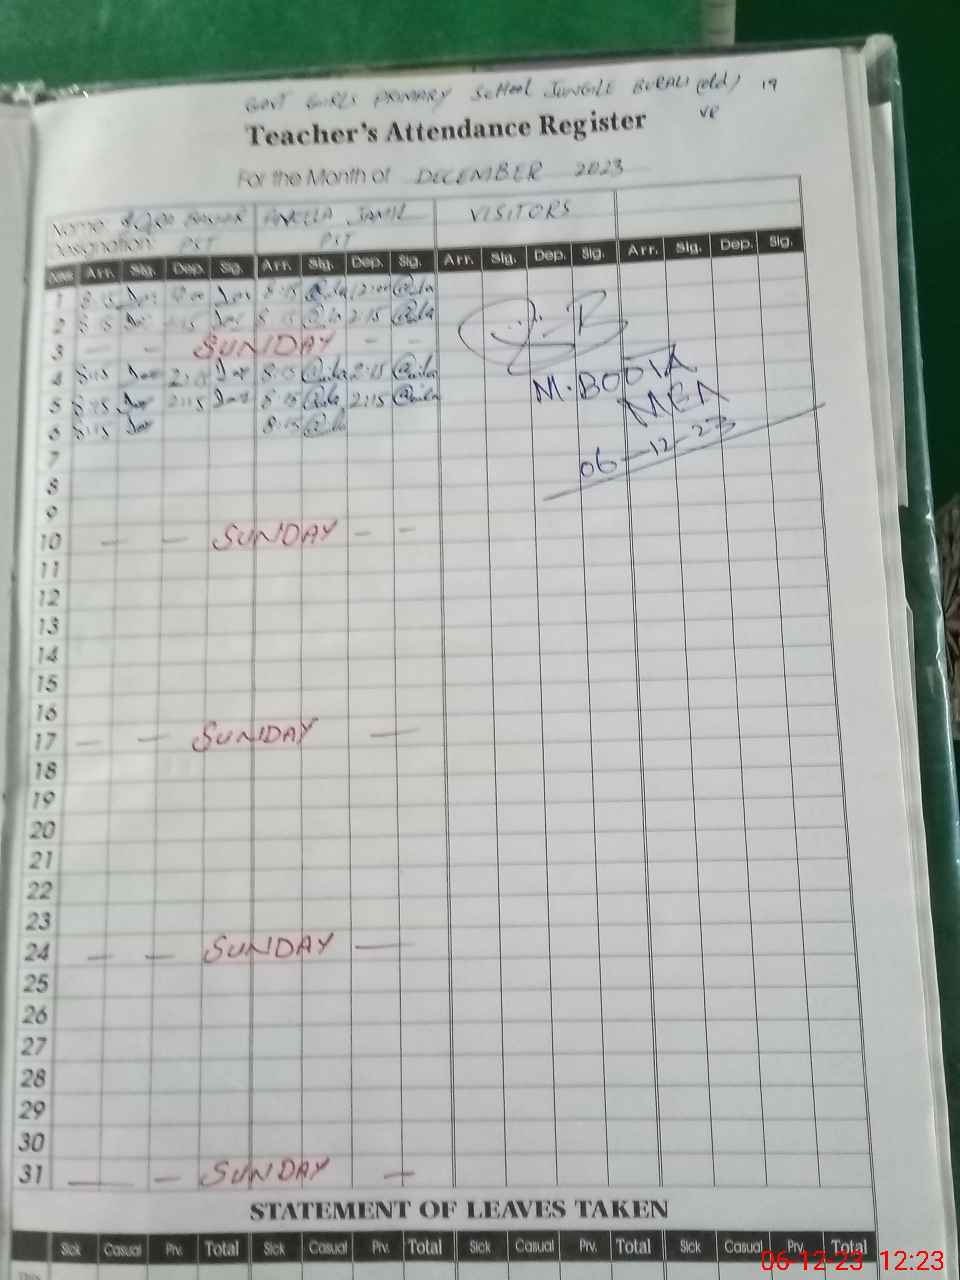 GOVT GIRLS PRIMARY SCHOOL JUNGLE (old) 19
Teacher's Attendance Register
For the Month of DECEMBER 2023
Name: JAMIL VISITORS
Designation: PST PST
Date Arr. Sig. Dep. Sig. Arr. Sig. Dep. Sig. Arr. Sig. Dep. Sig. Arr. Sig. Dep. Sig.
1 8:15 8:15 12:00
2 8:15 2:15 8:15 2:15
3 — — SUNDAY — —
4 8:15 8:15 2:15
5 8:15 2:15 8:15 2:15
6 8:15 8:15
M. BOOTA
MEA
06-12-23
7
8
9
10 — — SUNDAY — —
11
12
13
14
15
16
17 — — SUNDAY —
18
19
20
21
22
23
24 — — SUNDAY —
25
26
27
28
29
30
31 — — SUNDAY —
STATEMENT OF LEAVES TAKEN
Sick Casual Prv. Total Sick Casual Prv. Total Sick Casual Prv. Total Sick Casual Prv. Total
06-12-23 12:23